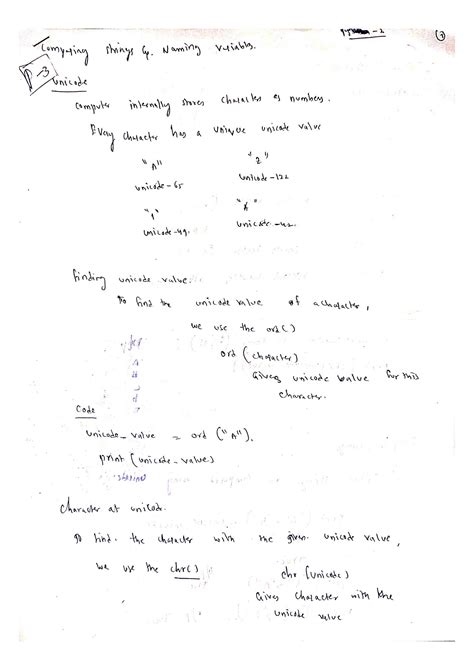 Comparing strings & Naming variables.
P-3
Unicode
Computer internally stores characters as numbers.
Every character has a unique unicode value
"A" "z"
unicode-65 unicode-122
"1" "*"
unicode-49. unicode-42.
finding unicode value.
To find the unicode value of a character,
we use the ord()
ord (character)
Gives unicode value for this
character.
Code
unicode_value = ord ("A").
print (unicode_value)
Character at unicode.
To find. the character with the given unicode value,
we use the chr()
chr (unicode)
Gives character with the
unicode value